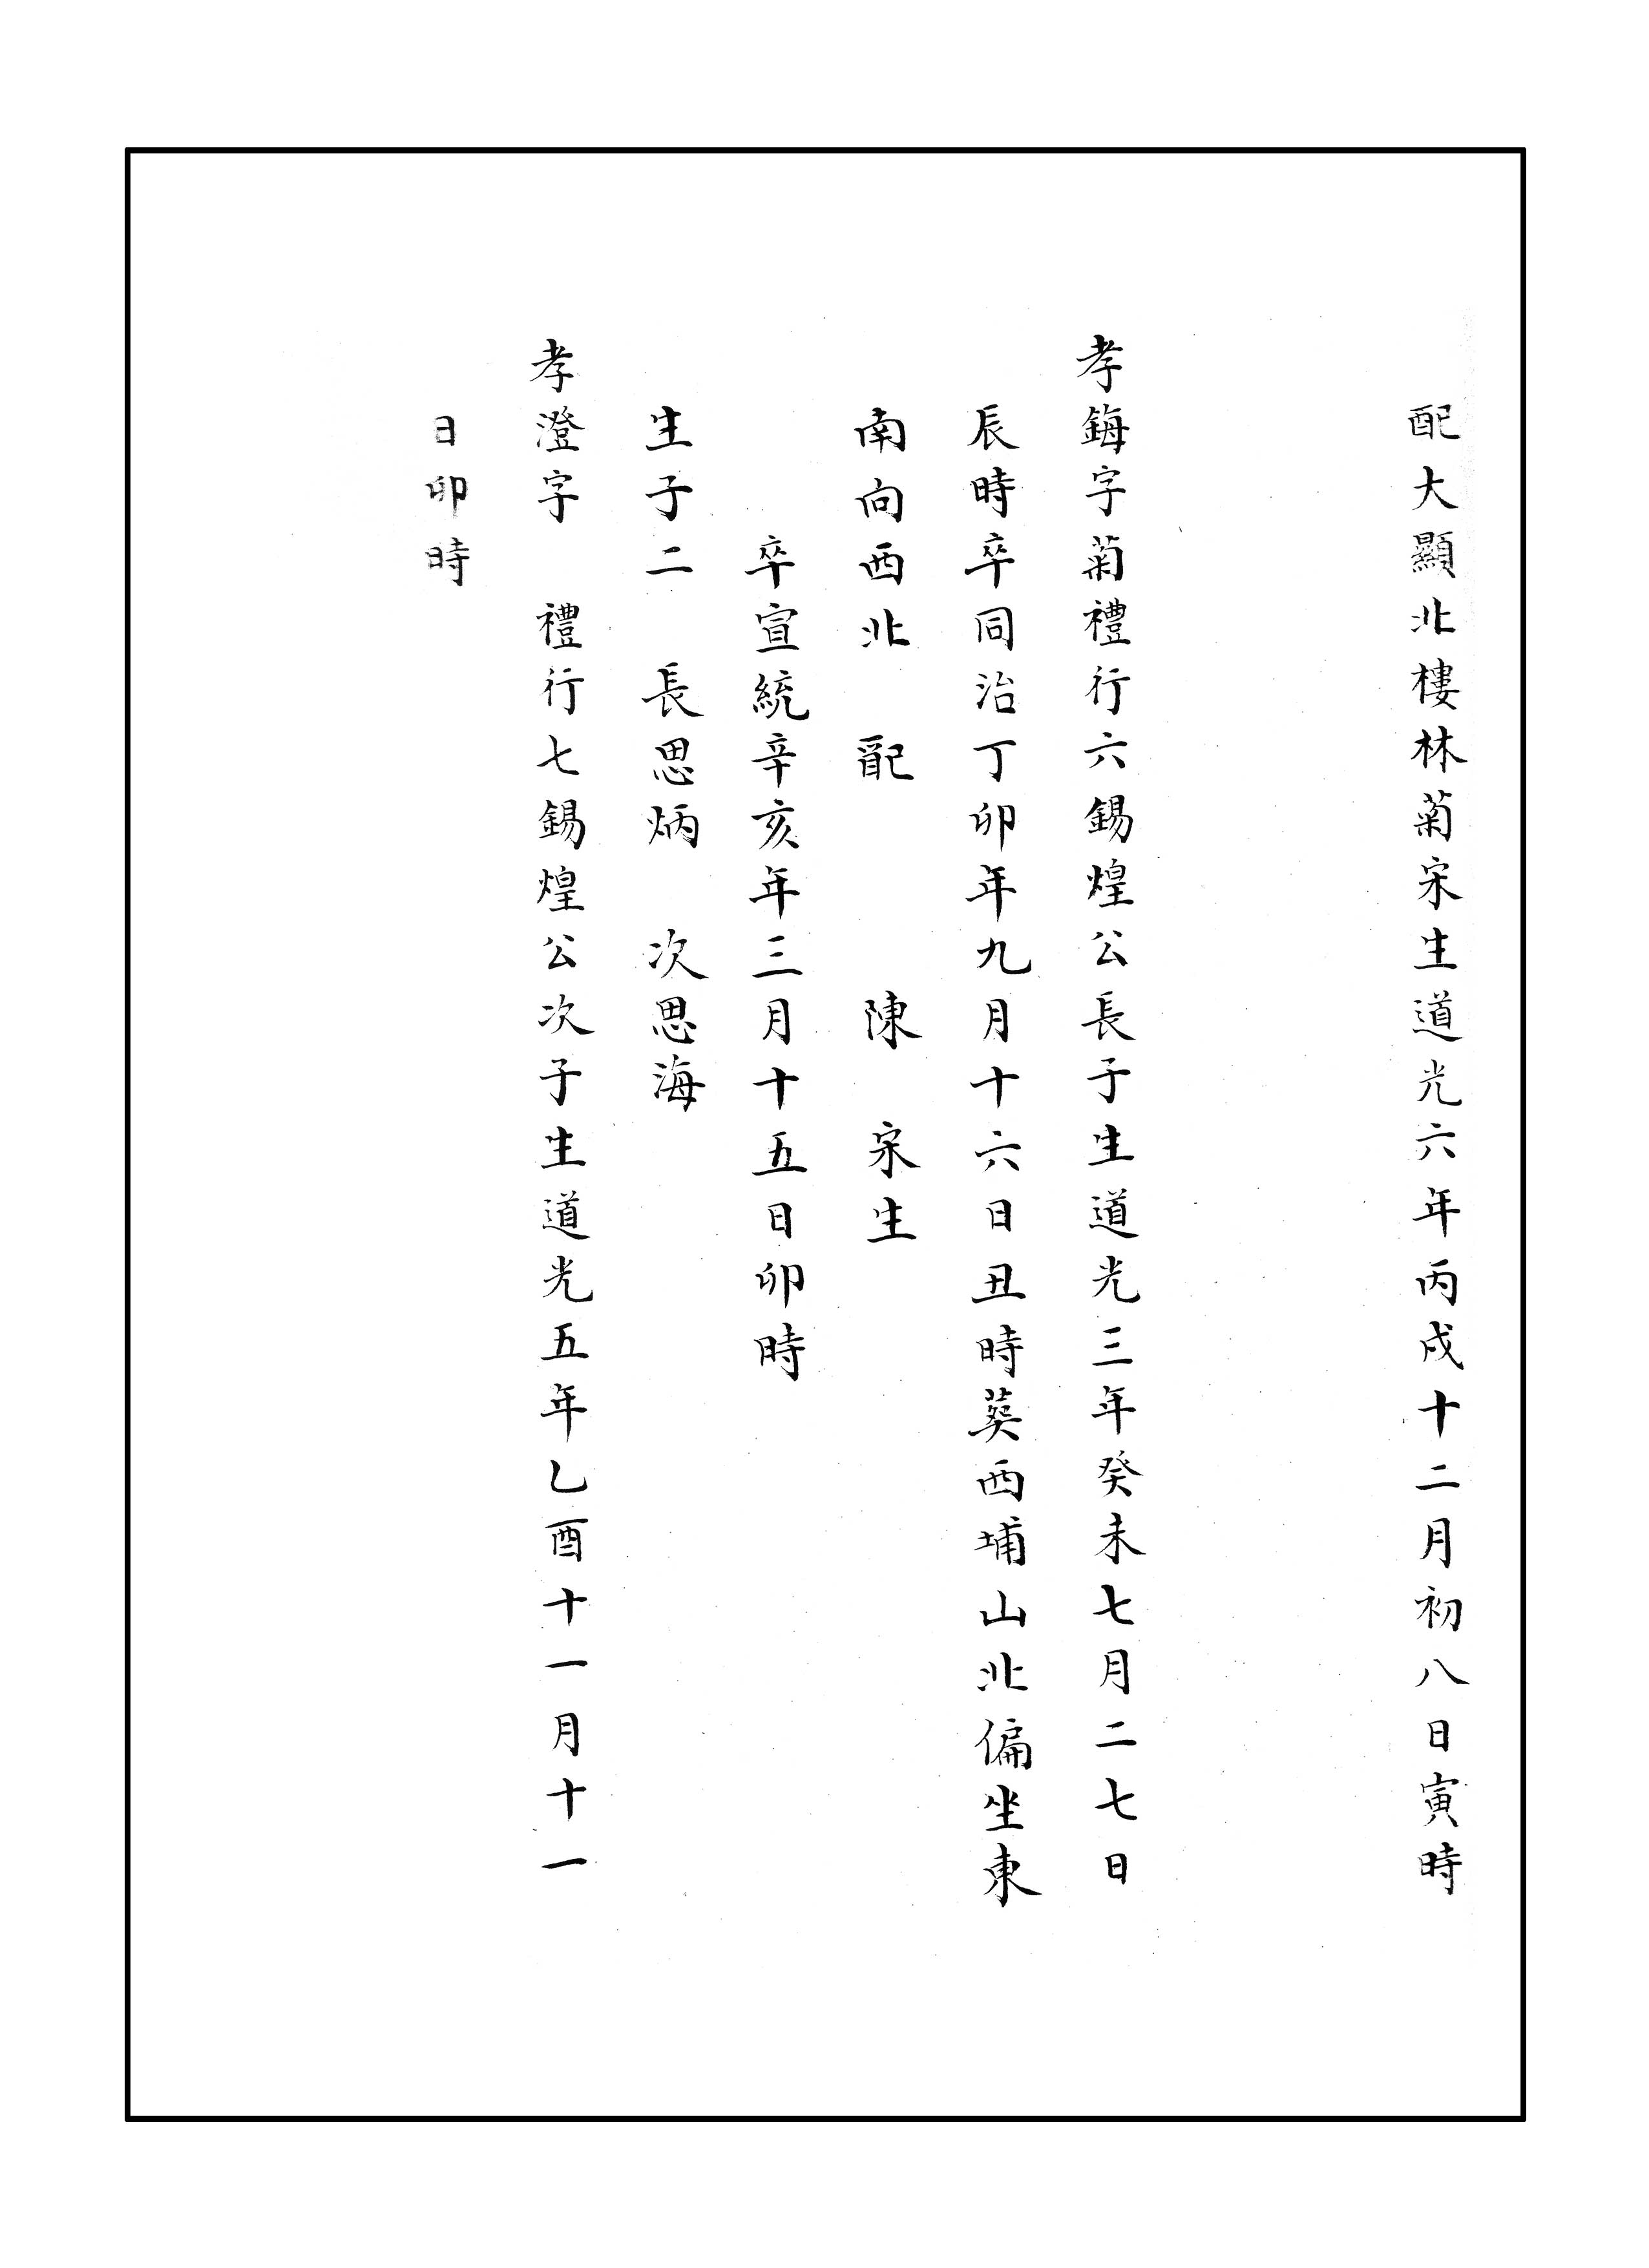 配大顯北樓林菊宋生道光六年丙戌十二月初八日寅時
孝鋂字菊禮行六錫煌公長子生道光三年癸未七月二七日
辰時卒同治丁卯年九月十六日丑時葬西埔山北偏坐東
南向西北 配 陳 宋生
卒宣統辛亥年三月十五日卯時
生子二 長思炳 次思海
孝澄字 禮行七錫煌公次子生道光五年乙酉十一月十一
日卯時